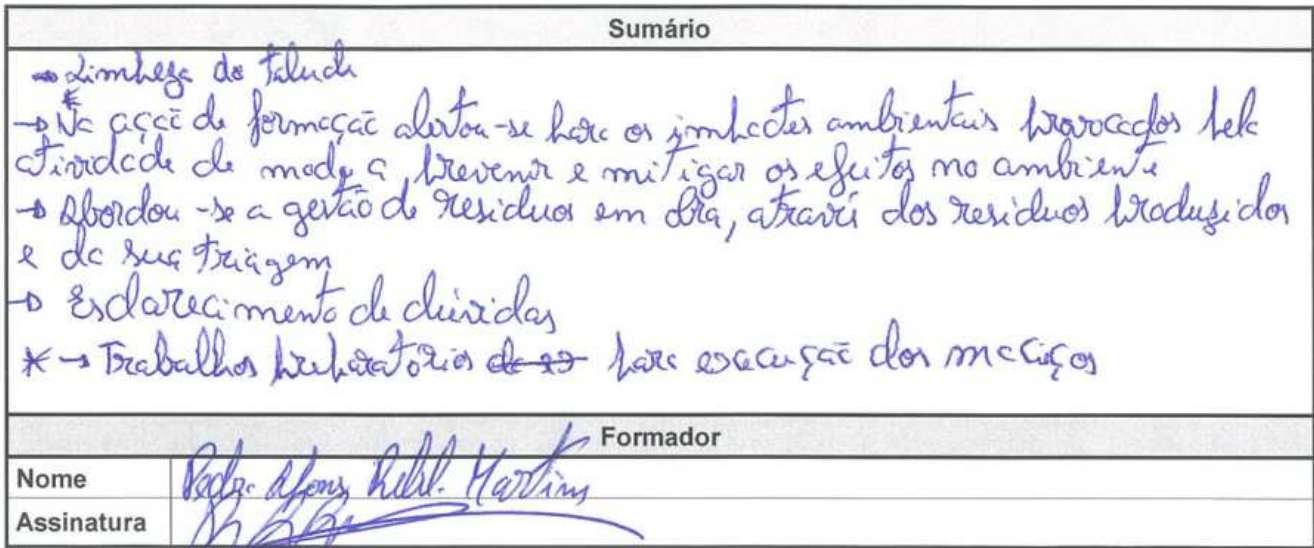 Sumário
→ Limpeza do talude
*
→ Na ação de formação alertou-se para os impactes ambientais provocados pela
atividade de modo a prevenir e mitigar os efeitos no ambiente
→ Abordou-se a gestão de residuos em obra, através dos residuos produzidos
e da sua triagem
→ Esclarecimento de dúvidas
* → Trabalhos preparatórios para execução dos maciços
Formador
Nome Pedro Afonso Martins
Assinatura